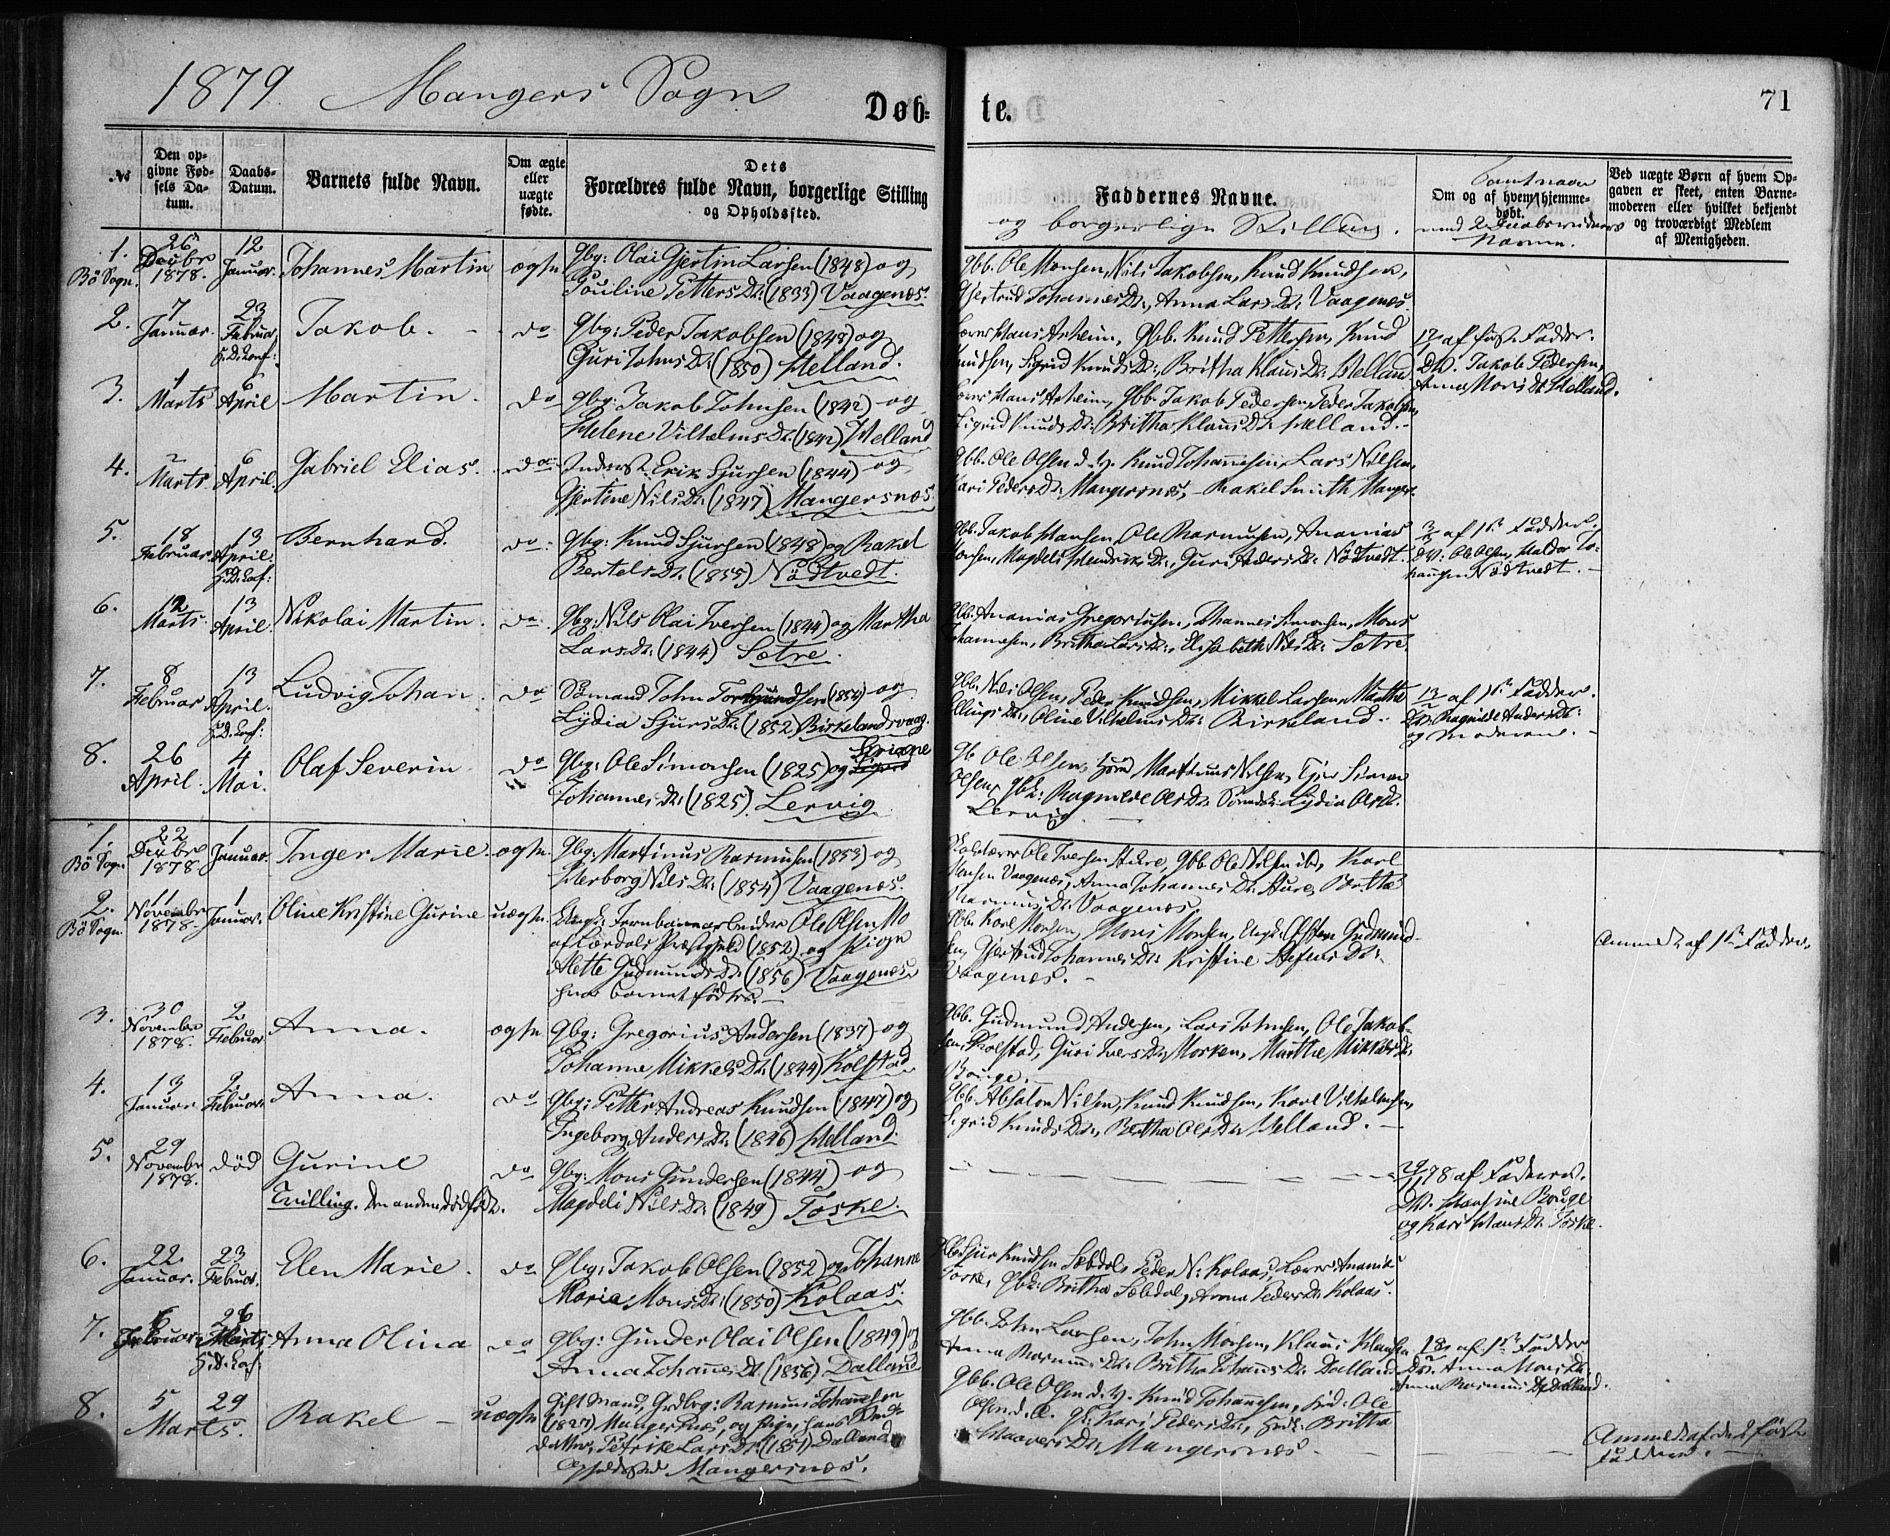 1879. Mangers Sogn
Døb-
te.
71
No
Den opgivne Fødsels Datum.
Daabs-Datum.
Barnets fulde Navn.
Om ægte eller uægte fødte.
Dets
Forældres fulde Navn, borgerlige Stilling
og Opholdssted.
Faddernes Navne.
og borgerlige Stilling.
Om og af hvem hjemmedøbt.
Samt navn
med 2 Daabsvidners Navne.
Ved uægte Børn af hvem Opgaven er skeet, enten Barnemoderen eller hvilket bekjendt og troværdigt Medlem af Menigheden.
1.
Bö Sogn.
26 Decbr 1878.
12 Januar.
Johannes Martin
ægte
Gbg: Olai Gjertin Larsen (1848) og
Pouline PettersDr. (1833) Vaagenæs.
Gbb. Ole Monsen, Nils Jakobsen, Knud Knudsen,
Gjertrud JohannesDr., Anna LarsDr. Vaagenæs.
2.
7 Januar.
23 Februar
Jakob.
do
Gbg: Peder Jakobsen (1848) og
Guri JohnsDr. (1850) Helland.
Lærer Hans Askeim, Gbb. Knud Pettersen, Knud
Knudsen, Sigrid KnudsDr., Britha KlausDr. Helland
af første Fadder.
DV. Jakob Pedersen,
Anna MonsDr. Helland.
3.
1 Marts
6 April
Martin.
do
Gbg: Jakob Johnsen (1842) og
Helene VilhelmsDr. (1842) Helland
Lærer Hans Askeim, Gbb. Jakob Pedersen, Peder Jakobsen,
Sigrid KnudsDr. Britha KlausDr. Helland.
4.
2 Marts
6 April.
Gabriel Elias.
do
Inderst Erik Sjursen (1844) og
Gjertine NilsDr. (1847) Mangersnæs
Gbb. Ole Olsen d.y. Knud Johannesen, Lars Nilsen,
Kari PedersDr. Mangersnæs, Rakel Smith Manger.
5.
18 Februar
13 April
Bernhard.
do
Gbg: Knud Sjursen (1848) og Rakel
BertelsDr. (1855) Nödtvedt.
Gbb. Jakob Hansen, Ole Rasmusen, Ananias
Monsen, Magdeli HendriksDr., Guri AndersDr. Nödtvedt
af 1ste Fadder.
DV. Ole Olsen, Haldor Jo-
hannesen Nödtvedt.
6.
12 Marts
13 April.
Nikolai Martin.
do
Gbg: Nils Olai Iversen (1844) og Martha
LarsDr. (1844) Sætre.
Gbb. Ananias Gregoriusen, Johannes Simonsen, Mons
Johannesen, Britha LarsDr., Elisabeth NilsDr. Sætre.
7.
8 Februar
13 April.
Ludvig Johan.
do
Sömand John (1854) og
Lydia SjursDr. (1852) Birkelandsvaag.
Gbb. Nils Olsen, Peder Knudsen, Mikkel Larsen, Marthe
EllingsDr., Oline VilhelmsDr. Birkeland.
af 1ste Fadder.
DV. Ragnilde AndersDr.
og Moderen.
8.
26 April.
4 Mai.
Olaf Severin
do
Gbg: Ole Simonsen (1825) og
JohannesDr. (1825). Lervig
Gb. Ole Olsen, Martinus Nilsen, Simon
Olsen, Gbk. Ragnilde OlsDr. Lydia OlsDr.
Lervig
1.
Bö Sogn
22 Decbr 1878
1 Januar.
Inger Marie.
ægte.
Gbg: Martinus Rasmusen (1853) og
Herborg NilsDr. (1854) Vaagenæs.
Ole Iversen Hure, Gbb. Ole Nilsen ibd, Karl
Monsen Vaagenæs, Anna JohannesDr. Hure, Britha
RasmusDr. Vaagenæs
2.
Bö Sogn.
11 November 1878.
1 Januar.
Oline Kristine Gurine
uægte.
Ungk: Jernbanearbeider Ole Olsen Mo
af Lærdals Præstegjeld (1852) og Pige
Alette GudmundsDr. (1856) Vaagenæs
hvor barnet födtes.
Gbb. Karl Monsen, Mons Monsen, Ungk. Gudmund-
sen, Gjertrud JohannesDr. Kristine
Vaagenæs.
Anmeldt af 1ste Fadder.
3.
30 November 1878.
2 Februar
Anna.
ægte.
Gbg: Gregorius Andersen (1837) og
Johanne MikkelsDr. (1844) Kolstad
Gbb. Gudmund Andersen, Lars Johnsen, Ole Jakob-
sen Kolstad, Guri IversDr. Morken, Marthe MikkelsDr.
Bouge.
4.
13 Januar.
2 Februar.
Anna.
do
Gbg: Petter Andreas Knudsen (1847) og
Ingeborg AndersDr. (1846) Helland
Gbb. Absalon Nilsen, Knud Knudsen, Karl Vilhelmsen,
Sigrid KnudsDr., Britha OlsDr. Helland.
5.
29 November 1878.
död
Gurine
Tvilling. Den anden dödfödt.
do
Gbg: Mons Gundersen (1844) og
Magdeli NilsDr. (1849) Toske.
29/11 78 af Faderen.
DV. Hansine Bouge
og Kari HansDr. Toske.
6.
22. Januar.
23 Februar.
Elen Marie.
do
Gbg: Jakob Olsen (1852) og Johanne
Maria MonsDr. (1850) Kolaas.
Gbb. Sjur Knudsen Sæbdal, Peder N. Kolaas, Lærer Ananias
Toske, Gbk: Britha Sæbdal, Anna PedersDr. Kolaas.
7.
6 Februar
Marts
Anna Olina
do
Gbg: Gunder Olai Olsen (1849) og
Anna JohannesDr. (1856) Dalland
Gbb. John Larsen, John Monsen, Klaus Klausen
Anna RasmusDr. Britha JohannesDr. Dalland
af 1ste Fadder
DV. Anna MonsDr.
Anna RasmusDr. Dalland.
8.
5 Marts.
29
Rakel
uægte
Gift Mand, Grdbrg: Rasmus Johannesen
(1827) Mangersnæs, og Pige,
Petrike LarsDr. (1851) Dalland
Opholdssted Mangersnæs.
Gbb. Ole Olsen d.y. Knud Johannesen, Ole
Olsen d.æ. Kari PedersDr., Britha
HaaversDr. Mangersnæs
Anmeldt af de 2 første
Faddere.